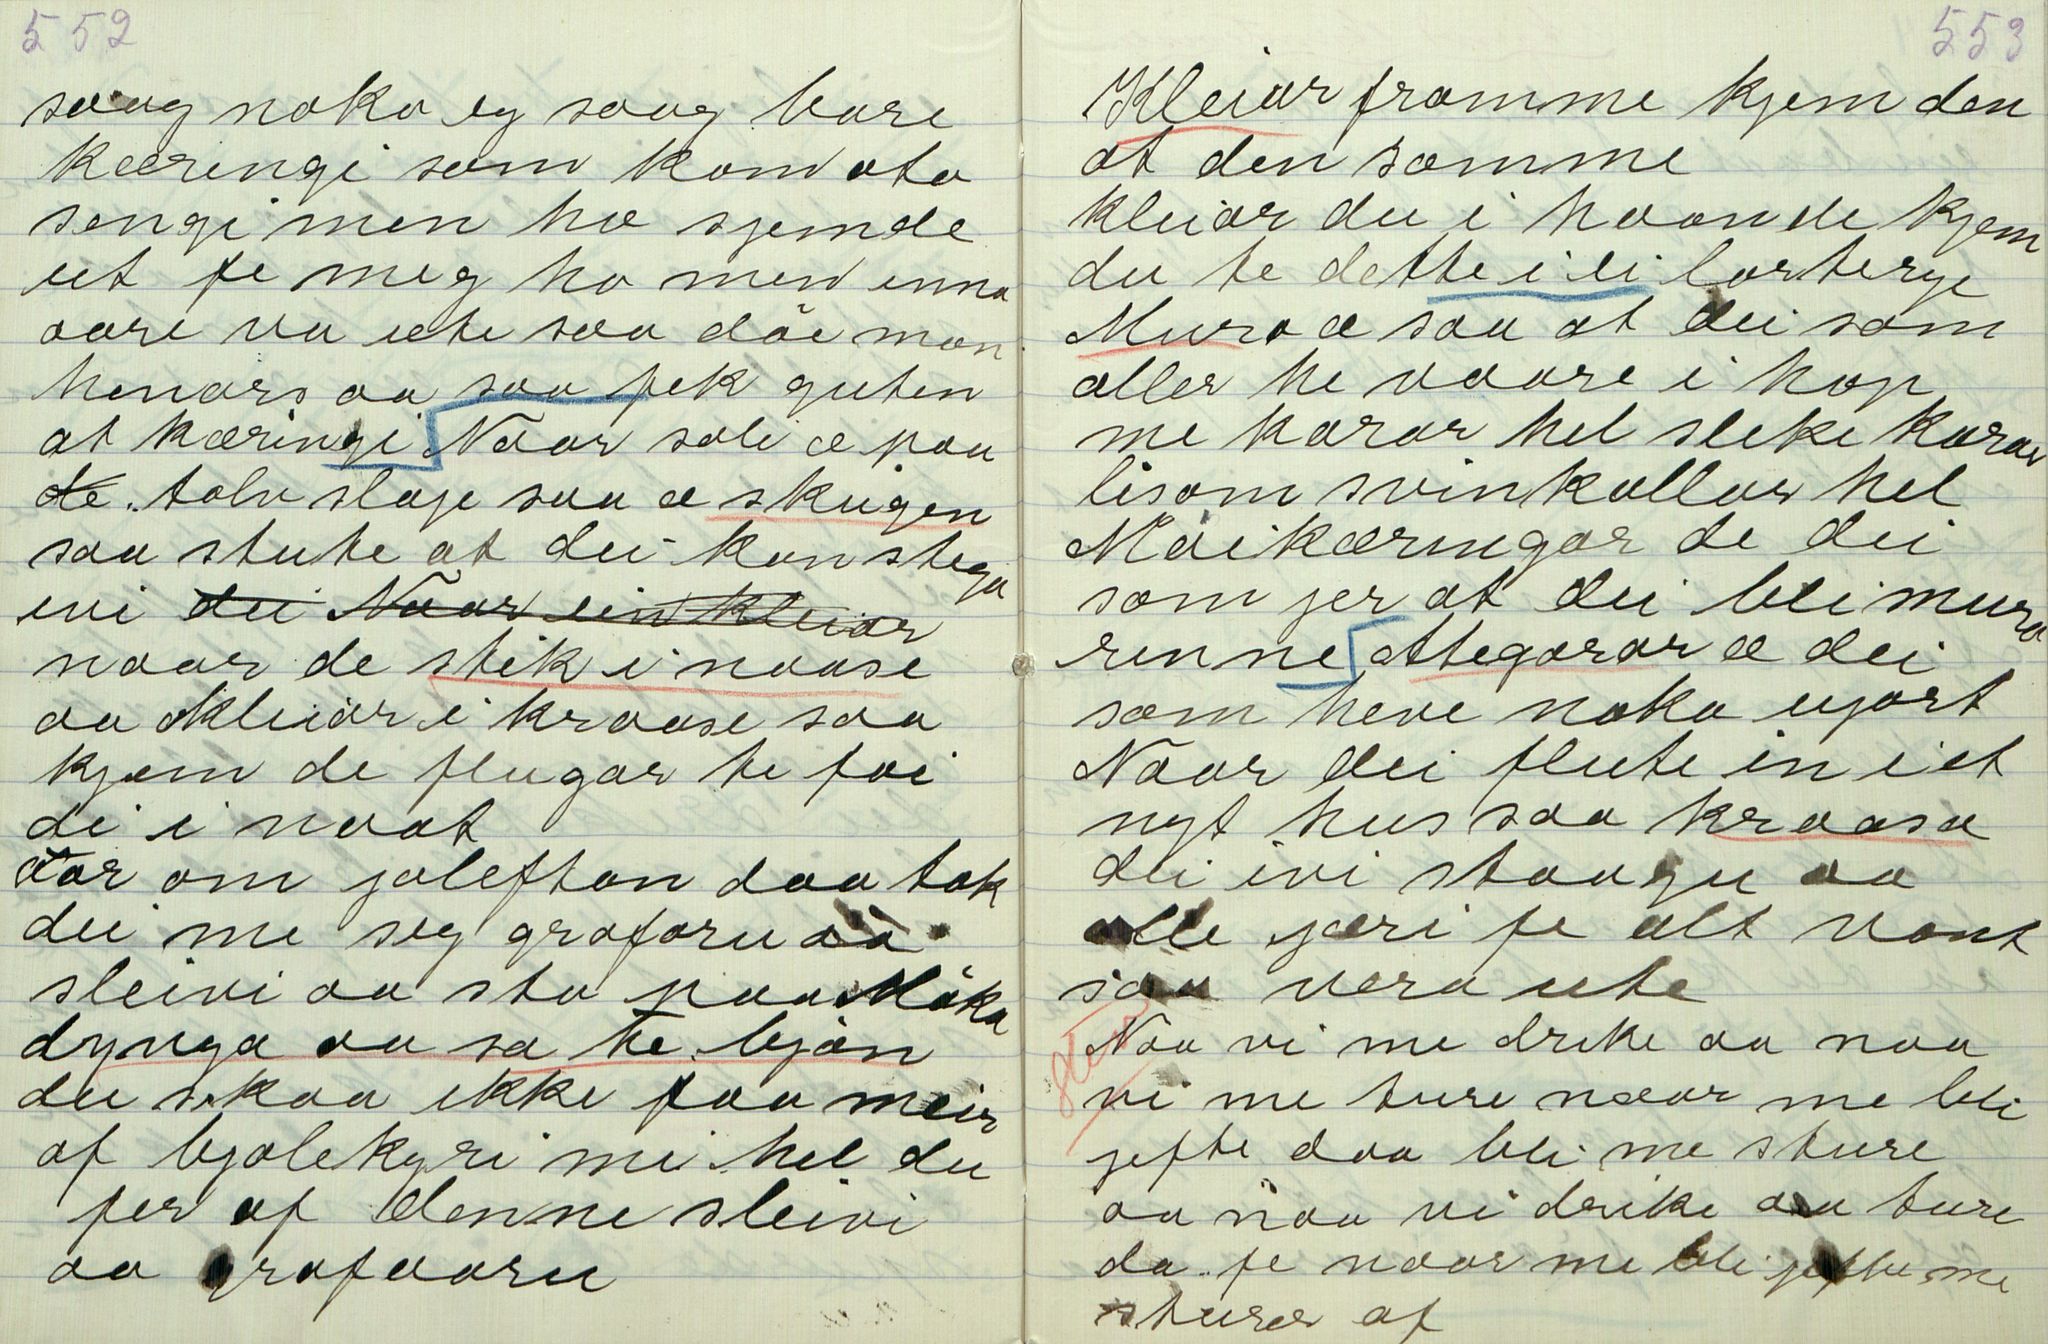 552
saag noko eg saag bare
kæringi som kom ato
sengi men ho sjemde
ut fe meg ho men enno
aare va ute saa döe man
henars aa saa fek guten
at kæringi Naar sole æ paa
de tolv slage saa æ skugen
saa stutte at dei kan stega
ivi dei Naar ein kleiar
naar de stik i naase
aa kleiar i kraase saa
kjem de flugar te foi
di i naat
Aar om joleftan daa tok
dei me seg grafaru aa
sleivi aa sto paa Möka
dynga aa sa te bjön
du skaa ikke faa meir
af bjølekyri mi hel du
fer af denne sleivi
aa grafaaru
553
Kleiar framme kjem den
at den samme
kleiar du i haande kjem
du te dette i ei lorterge
Mura æ saa at dei som
aller he vaare i hop
me karar hel slike karar
lisom svinkallar hel
Möikæringar de dei
som jer at dei bli mura
renne Attegarar æ dei
som heve noko ugjort
Naar dei flute in i et
nyt hus saa kraasa
dei ivi staagu aa
alle jæri fe alt vont
saa vera ute
Naa vi me drike aa naa
vi me ture naar me bli
jefte daa bli me sture
aa naa vi drike aa ture
da fe naar me bli jefte me
sturer af